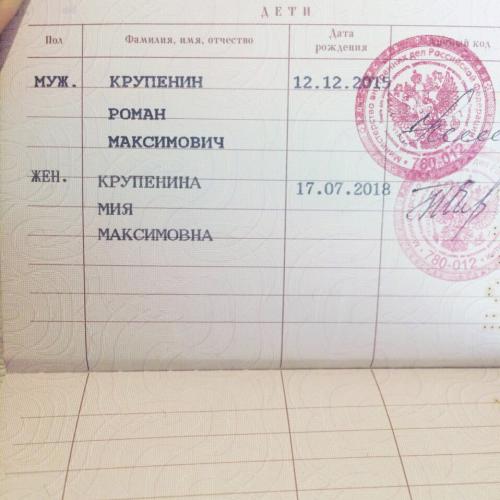 ДЕТИ
Пол Фамилия, имя, отчество Дата рождения код
МУЖ. КРУПЕНИН 12.12.2015
РОМАН
МАКСИМОВИЧ
ЖЕН. КРУПЕНИНА 17.07.2018
МИЯ
МАКСИМОВНА
780-012
780-012